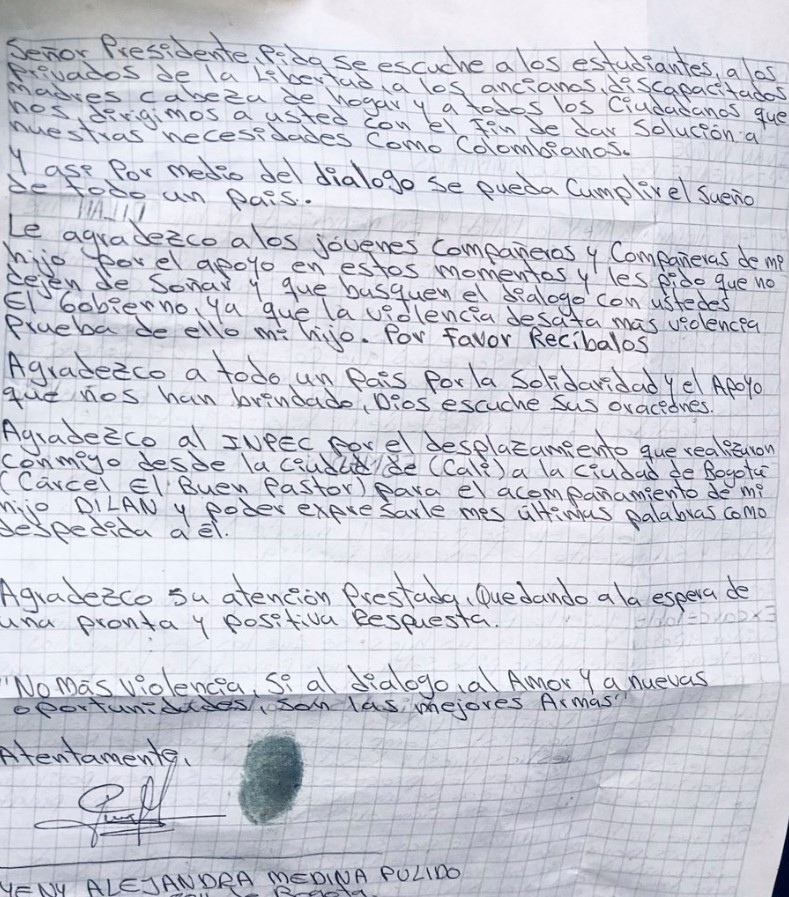 Señor Presidente, Pido se escuche a los estudiantes, a los
privados de la libertad, a los ancianos, discapacitados
madres cabeza de hogar y a todos los Ciudadanos que
nos dirigimos a usted con el fin de dar Solución a
nuestras necesidades Como Colombianos.
Y asi Por medio del dialogo se pueda Cumplir el Sueño
de todo un pais..
Le agradezco a los jóvenes Compañeros y Compañeras de mi
hijo por el apoyo en estos momentos y les pido que no
dejen de Soñar y que busquen el dialogo con ustedes
El Gobierno, ya que la violencia desata mas violencia
Prueba de ello mi hijo. Por favor Recibalos
Agradezco a todo un Pais Por la Solidaridad y el Apoyo
que nos han brindado, Dios escuche Sus oraciones.
Agradezco al INPEC por el desplazamiento que realizaron
conmigo desde la ciudad de (Cali) a la Ciudad de Bogotá
(Cárcel El Buen Pastor) para el acompañamiento de mi
hijo DILAN y poder expresarle mis últimas palabras como
despedida a él.
Agradezco su atención Prestada, Quedando a la espera de
una pronta y positiva Respuesta.
"No más violencia, Si al dialogo, al Amor y a nuevas
oportunidades, son las mejores Armas"
Atentamente,
YENY ALEJANDRA MEDINA PULIDO
de Bogota.